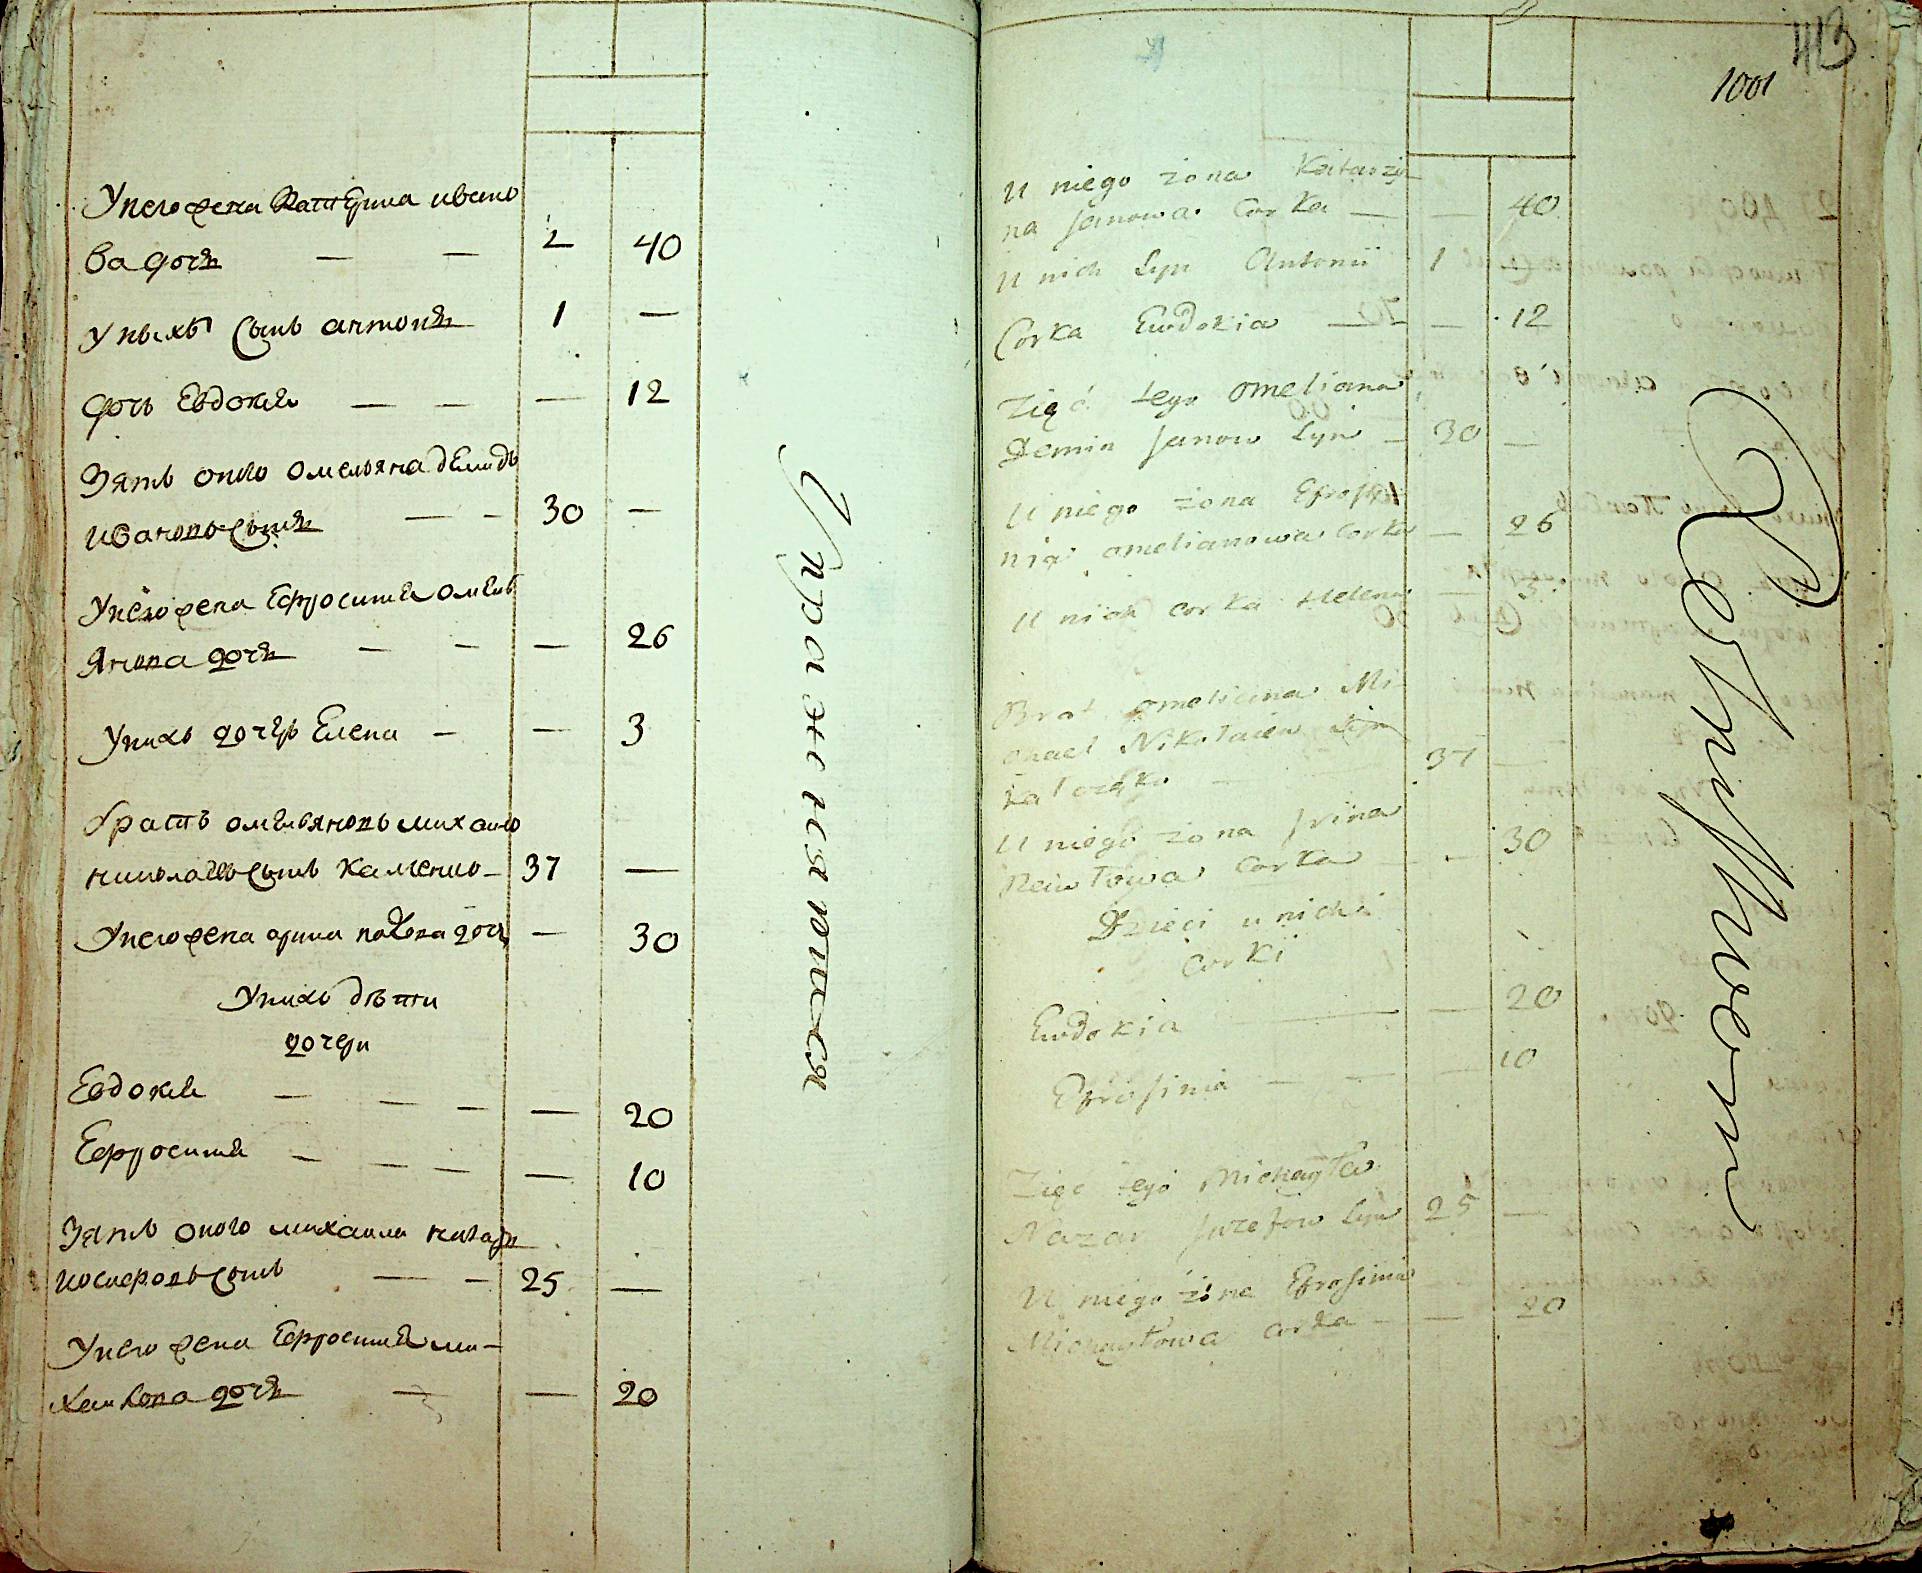 У него жена Катерина ивано
ва дочь — — 2 40
У нихъ сынъ антоній 1 —
дочь Евдокия — — — 12
Зять оного омельяна демидъ
ивановъ сынъ — — 30 —
У него жена Ефросиния омель
янова дочь — — — 26
У нихъ дочерь Елена — — 3
братъ омельяновъ михаило
николаевъ сынъ — 37 —
У него жена орина павлова дочь — 30
У нихъ дѣти
дочери
Евдокия — — — — 20
Ефросиния — — — — 10
Зять оного михаила назаръ
иосифовъ сынъ — — 25 —
У него жена Ефросиния ми-
хаилова дочь — — 20
Упражняются
413
1001
U niego żona Katarzy-
na Janowa Corka — — 40
U nich Syn Antonii 1
Corka Ewdokia — — 12
Zięć tego omeliana
Demin Janow Syn — 30 —
U niego żona Efrosi
nia omelianowa Corka — 26
U nich corka Helena
Brat omeliana Mi-
chael Nikolaiew Syn
37 —
U niego żona Irina
Corka — — 30
Dzieci u nich
Corki
Ewdokia — — 20
Efrosinia — — — 10
Zięc tego Michayła
Nazar Jozefow Syn 25 —
U niego żona Efrosinia
Michayłowa corka — — 20